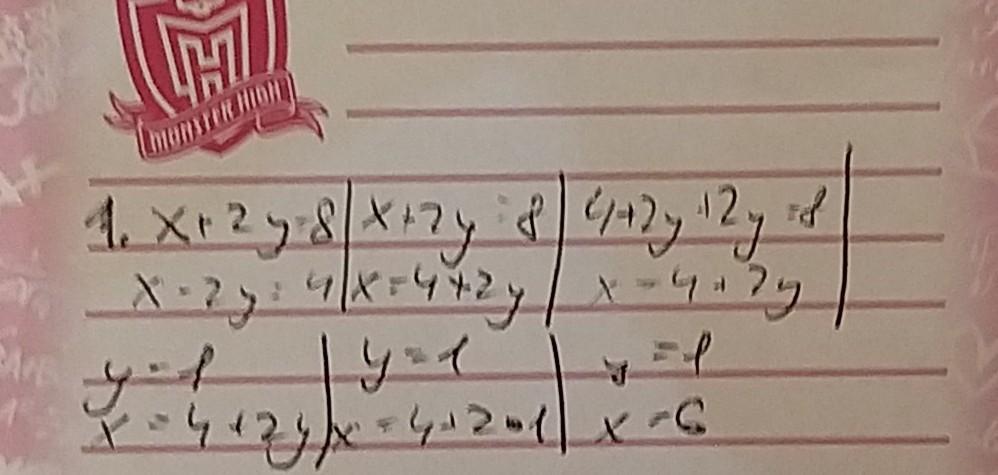 MONSTER HIGH
1. x+2y=8 | x+2y=8 | 4+2y+2y=8 |
x-2y=4 | x=4+2y | x=4+2y
y=1 | y=1 | y=1
x=4+2y | x=4+2·1 | x=6